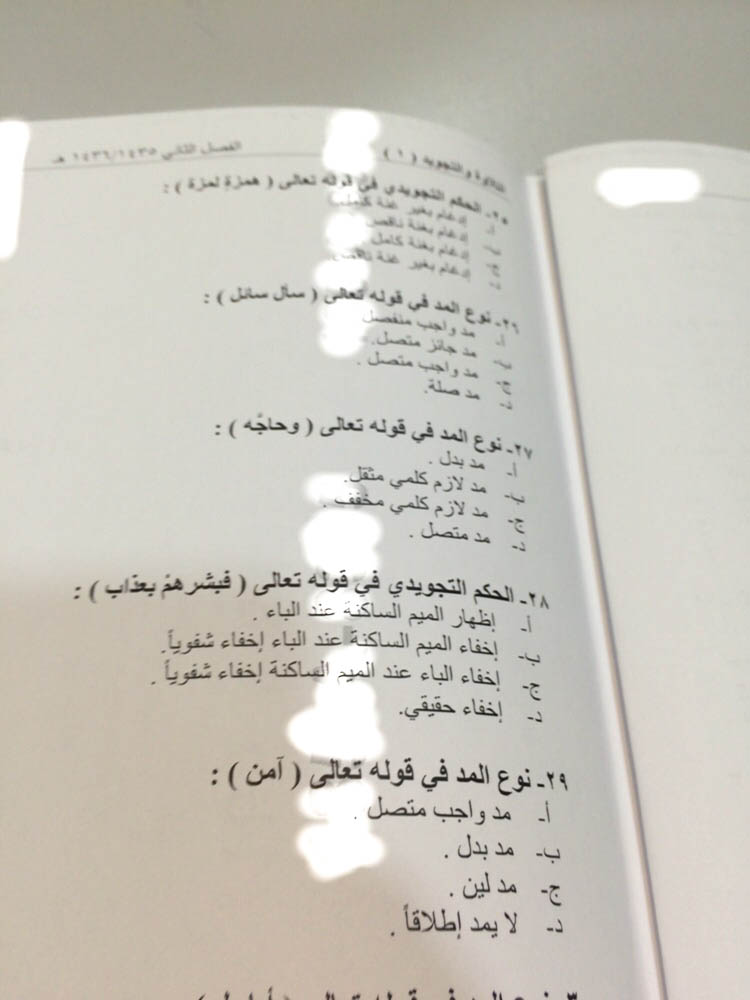 التلاوة والتجويد ( ١ ) الفصل الثاني ١٤٣٥/١٤٣٦ هـ
٢٥- الحكم التجويدي في قوله تعالى ( همزة لمزة ) :
أ- إدغام بغير غنة كامل.
ب- إدغام بغنة ناقص
ج- إدغام بغنة كامل
د- إدغام بغير غنة ناقص.
٢٦- نوع المد في قوله تعالى ( سأل سائل ) :
أ- مد واجب منفصل
ب- مد جائز متصل.
ج- مد واجب متصل .
د- مد صلة.
٢٧- نوع المد في قوله تعالى ( وحاجّه ) :
أ- مد بدل .
ب- مد لازم كلمي مثقل.
ج- مد لازم كلمي مخفف .
د- مد متصل .
٢٨- الحكم التجويدي في قوله تعالى ( فبشرهمْ بعذاب ) :
أ- إظهار الميم الساكنة عند الباء .
ب- إخفاء الميم الساكنة عند الباء إخفاء شفوياً.
ج- إخفاء الباء عند الميم الساكنة إخفاء شفوياً .
د- إخفاء حقيقي.
٢٩- نوع المد في قوله تعالى ( آمن ) :
أ- مد واجب متصل .
ب- مد بدل .
ج- مد لين .
د- لا يمد إطلاقاً .
نوع المد في قوله تعالى